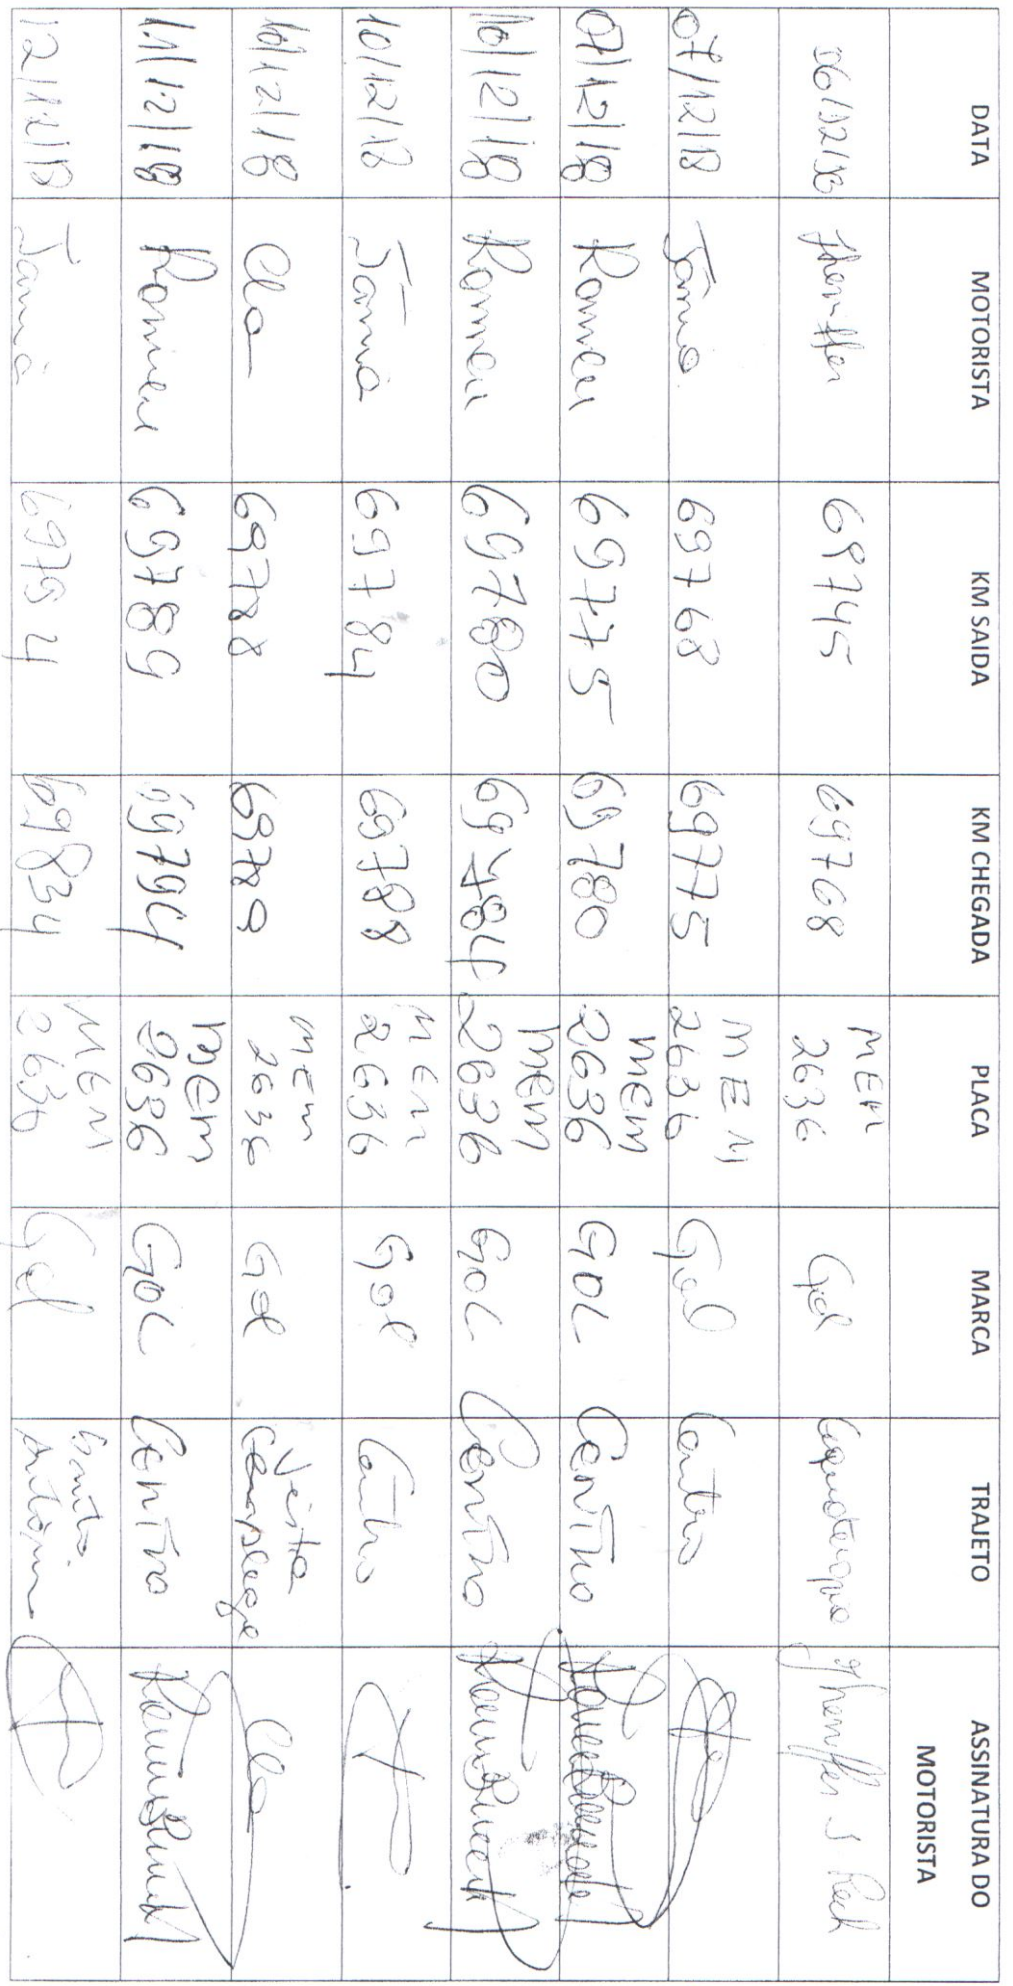 DATA MOTORISTA KM SAIDA KM CHEGADA PLACA MARCA TRAJETO ASSINATURA DO MOTORISTA
06/12/18 Jheniffer 69745 69768 MEM 2636 Gol Jheniffer S
07/12/18 Tânia 69768 69775 MEM 2636 Gol Centro
07/12/18 Romeu 69775 69780 MEM 2636 GOL Centro
10/12/18 Romeu 69780 69784 MEM 2636 GOL Centro
10/12/18 Tânia 69784 69788 MEM 2636 Gol Centro
10/12/18 Cleo 69788 69789 MEM 2636 Gol Cleo
11/12/18 Romeu 69789 69794 MEM 2636 GOL Centro
12/12/18 Tania 69794 69834 MEM 2636 Gol Santo Antônio